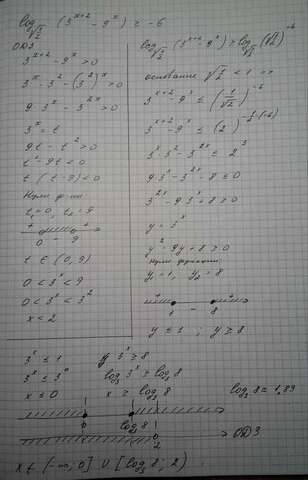 log_√½ (3^(x+2) - 9^x) ≥ -6
ОДЗ
3^(x+2) - 9^x > 0
3^x · 3^2 - (3^2)^x > 0
9·3^x - 3^(2x) > 0
3^x = t
9t - t^2 > 0
t^2 - 9t < 0
t (t - 9) < 0
Нули ф-ии:
t_1 = 0, t_2 = 9
+ - +
0 9
t ∈ (0, 9)
0 < 3^x < 9
0 < 3^x < 3^2
x < 2
основание √½ < 1 =>
3^x · 3^2 - 3^(2x) ≤ 2^3
9·3^x - 3^(2x) - 8 ≤ 0
3^(2x) - 9·3^x + 8 ≥ 0
y = 3^x
y^2 - 9y + 8 ≥ 0
Нули функции:
y_1 = 1, y_2 = 8
+ - +
1 8
y ≤ 1 ; y ≥ 8
3^x ≤ 1 3^x ≥ 8
3^x ≤ 3^0 log_3 3^x ≥ log_3 8
x ≤ 0 x ≥ log_3 8 log_3 8 = 1,89
0 log_3 8
2 ОДЗ
x ∈ (-∞, 0] ∪ [log_3 8; 2)